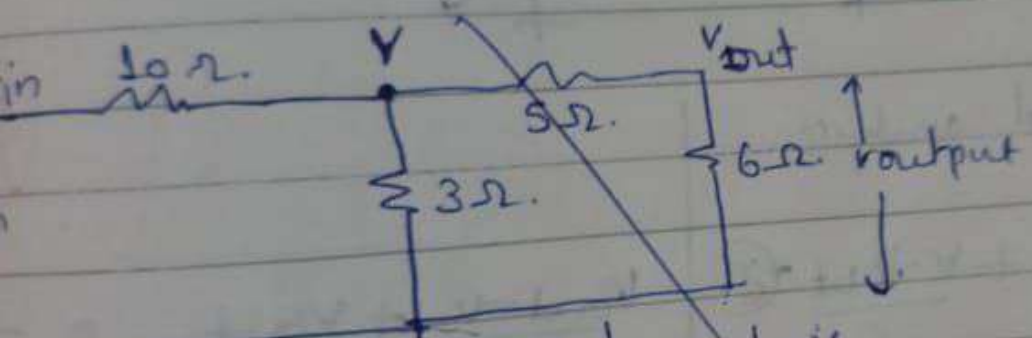 in 10 Ω. V Vout
5Ω.
3Ω. 6Ω. voutput